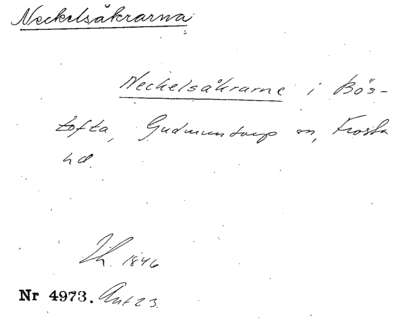 Neckelsåkrarna
Neckelsåkrarne i Bös-
tofta, Gudmuntorp sn, Frosta
hd.
1846
Nr 4973. Ant 23.